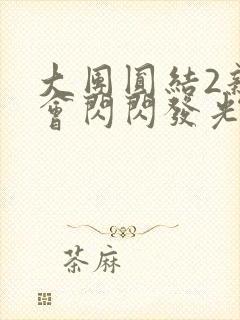 大團圓結2
會閃閃發光
茶麻